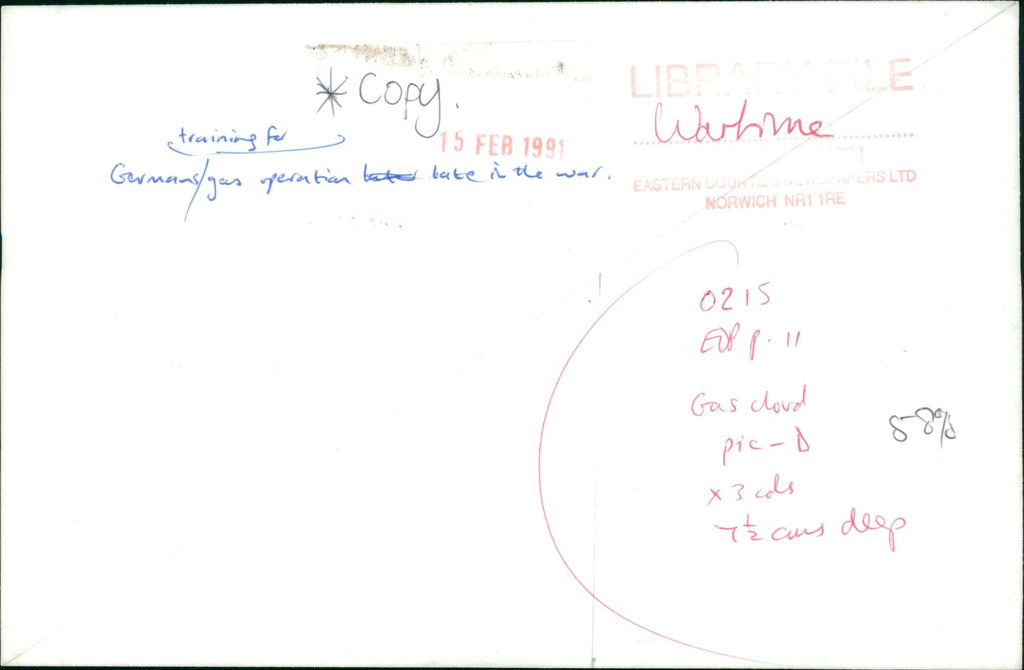 * Copy.
LIBRARY FILE
Wartime
training for
15 FEB 1991
Germans/gas operation later late in the war.
EASTERN COUNTIES NEWSPAPERS LTD
NORWICH NR1 1RE
0215
EDP p. 11
Gas cloud
pic - D
58%
x 3 cols
7½ cms deep